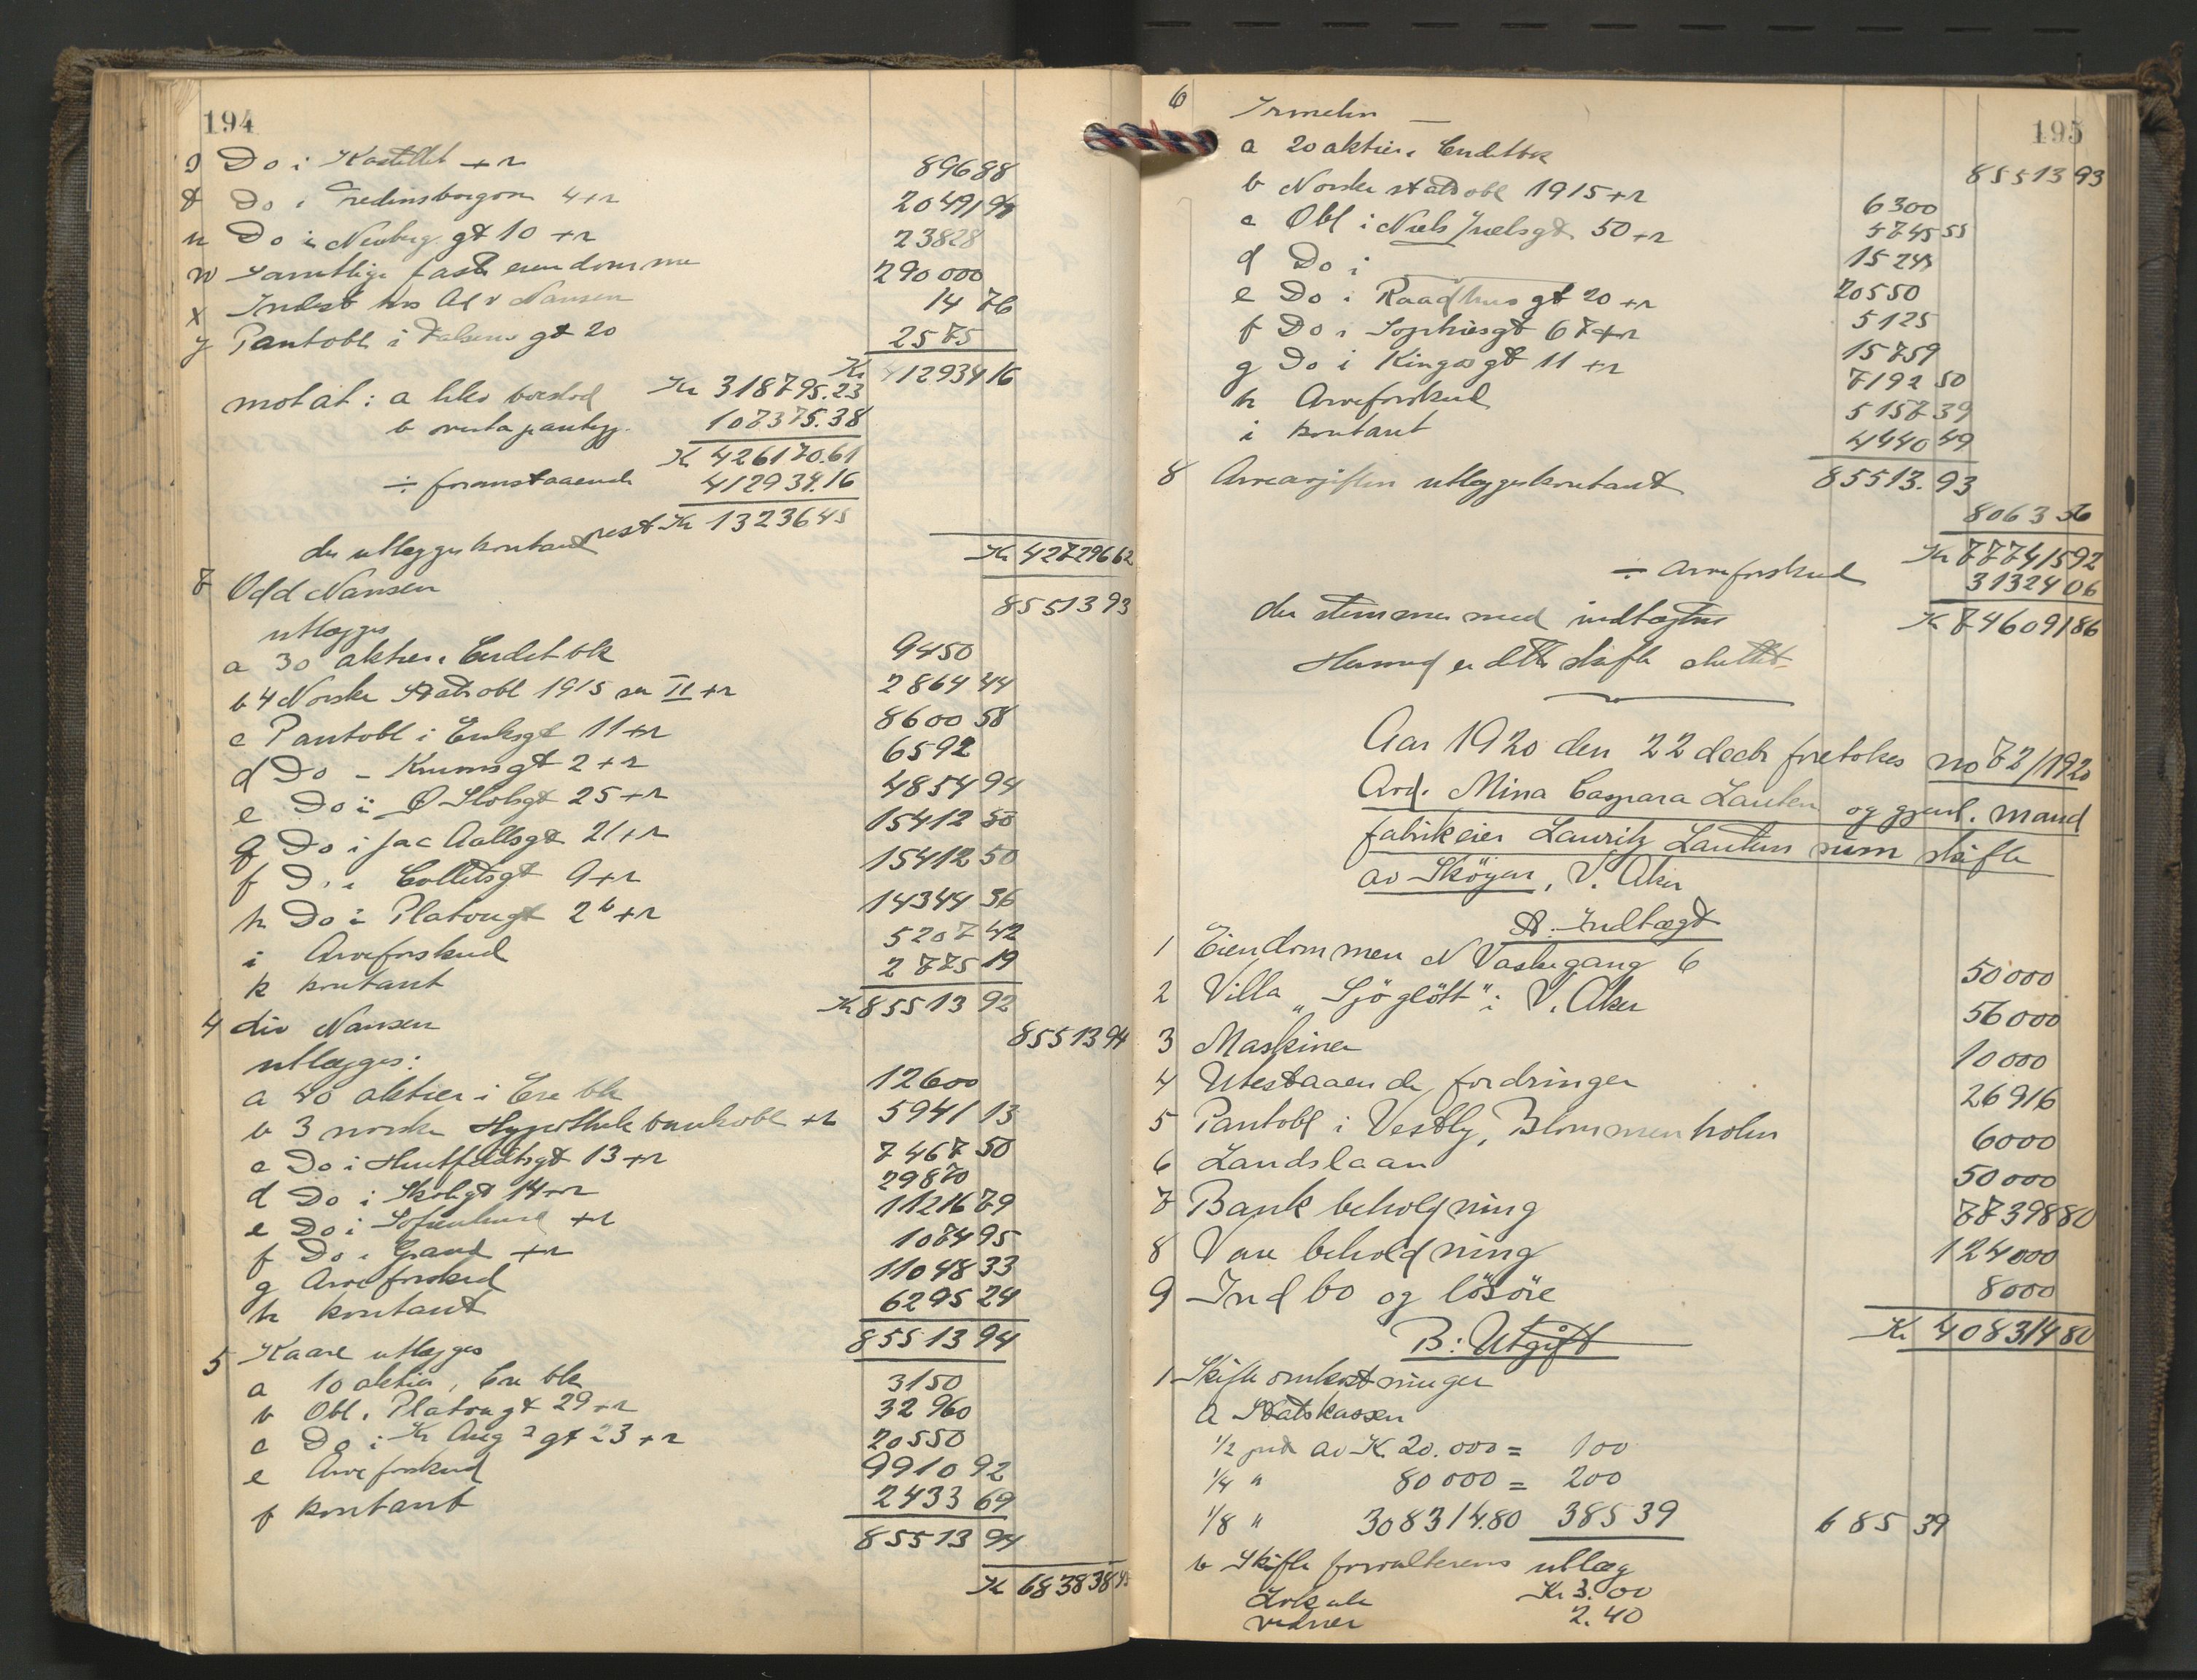 194
Do i Kastellet + r 89688
t Do i Fredensborgvn 4 + r 20491 94
u Do i Neuberg gt 10 + r 23828
w Samtlige faste eiendomme 290000
x Indest hos Adv Nansen 14 76
y Pantobl i gt 20 2575
Kr 412934 16
motat: a Kr 318795.23
b pantegj. 107375.38
K 426170.61
÷ foranstaaende 412934.16
rest Kr 13236 45
der utlægges kontant K 427296 62
7 Odd Nansen 85513 93
utlægges
a 30 aktier i Creditbk 9450
b 4 Norske Statsobl 1915 ser II + r 2864 44
c Pantobl i Eriksgt 11 + r 8600 58
d Do - Krumsgt 2 + r 6592
e Do i Ø Slotsgt 25 + r 4854 94
g Do i Jac Aallsgt 21 + r 15412 50
f Do i Collettsgt 9 + r 15412 50
h Do i Platousgt 2b + r 14344 36
i Arveforskud 5207 42
k kontant 2775 19
Kr 85513 92
4 Liv Nansen 85513 94
utlægges:
a 40 aktier i Cre bk 12600
b 3 norske Hypothekbankobl + r 5941 13
c Do i Huitfeldtsgt 13 + r 7467 50
d Do i Skolegt 14 + r 29870
e Do i Sofienlund + r 11216 79
f Do i Grand + r 1074 95
g Arveforskud 11048 33
h kontant 6295 24
85513 94
5 Kaare utlægges
a 10 aktier i Cre bk 3150
b Obl. Platousgt 29 + r 32960
c Do i Kr Aug gt 23 + r 20550
e Arveforskud 9910 92
f kontant 2433 69
85513 94
K 683838 43
195
6 Irmelin — 85513 93
a 20 aktier i Creditbk 6300
b Norske statsobl 1915 + r 5745 55
c Obl i Niels Juelsgt 50 + r 15245
d Do i 20550
e Do i Raadhusgt 20 + r 5125
f Do i Sophiesgt 67 + r 15759
g Do i Kingosgt 11 + r 7192 50
h Arveforskud 5157 39
i kontant 4440 49
85513.93
8 Arveavgiften utlægges kontant 8063 56
Kr 777415 92
÷ Arveforskud 31324 06
der stemmer med indtægten K 746091 86
Hermed er dette skifte sluttet
Aar 1920 den 22 decbr foretokes no 72/1920
Avd. Mina Caspara Lauten og gjenl. mand
fabrikeier Lauritz Lautens sum skifte
av Skøyen, V. Aker
A: Indtægt
1 Eiendommen N Vaskegang 6 50000
2 Villa „Sjöglött" i V. Aker 56000
3 Maskiner 10000
4 Utestaaende fordringer 26916
5 Pantobl i Vestby, Blommenholm 6000
6 Landslaan 50000
7 Bank beholdning 77398 80
8 Vare beholdning 124000
9 Indbo og lösöre 8000
Kr 408314 80
B: Utgift
1 Skifteomkostninger
a Statskassen
1/2 pct av K. 20.000 = 100
1/4 " 80 000 = 200
1/8 " 308314.80 385 39 685 39
b Skifteforvalterens utlæg
Lokale Kr 3.00
vidner 2.40